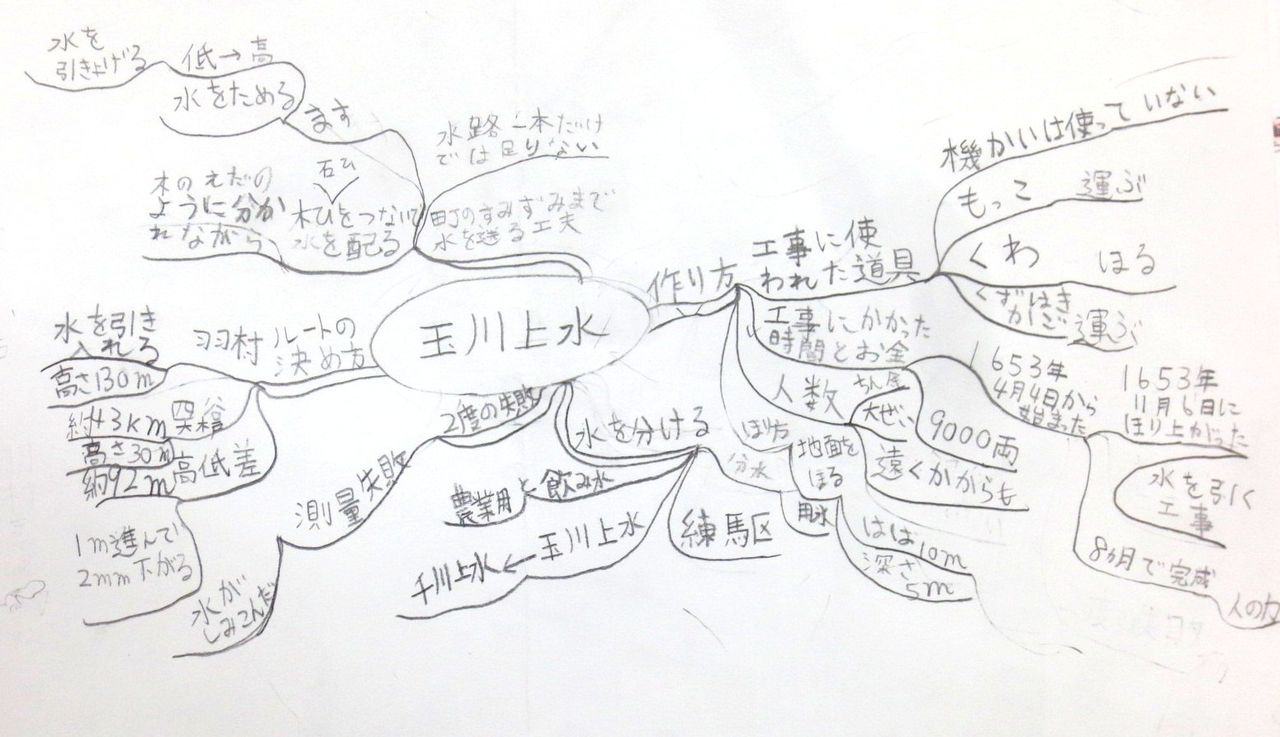 玉川上水
作り方
工事に使
われた道具
機かいは使って いない
もっこ 運ぶ
くわ ほる
くずはき
かご 運ぶ
工事にかかった
時間とお金
1653年
4月4日から
始まった
1653年
11月6日に
ほり上がった
水を引く
工事
8カ月で完成
人の力
9000両
人数
大ぜい
遠くからも
ほり方
地面を
ほる
はば10m
深さ
5m
水を分ける
分水
用水
練馬区
玉川上水
千川上水
飲み水
と
農業用
2度の失敗
測量失敗
水が
しみこんだ
羽村 ルートの
決め方
水を引き
入れる
高さ130m
四谷
約43km
高さ30m
高低差
約92m
1m進んで
2mm下がる
水路一本だけ
では足りない
町のすみずみまで
水を送る工夫
石ひ
木ひをつないで
水を配る
木のえだの
ように分か
れながら
ます
水をためる
低→高
水を
引き上げる